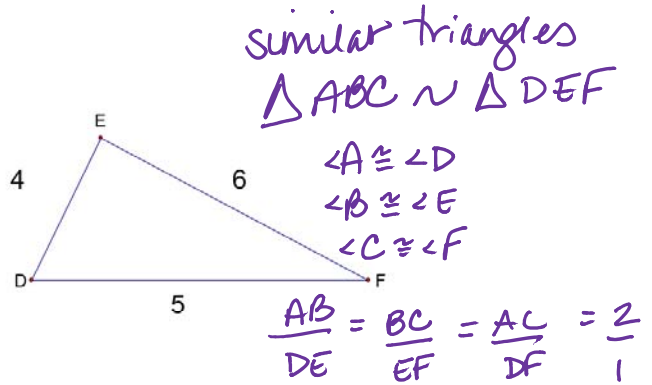 similar triangles
△ABC ~ △DEF
E
4
6
<A ≅ <D
<B ≅ <E
<C ≅ <F
D
F
5
AB/DE = BC/EF = AC/DF = 2/1